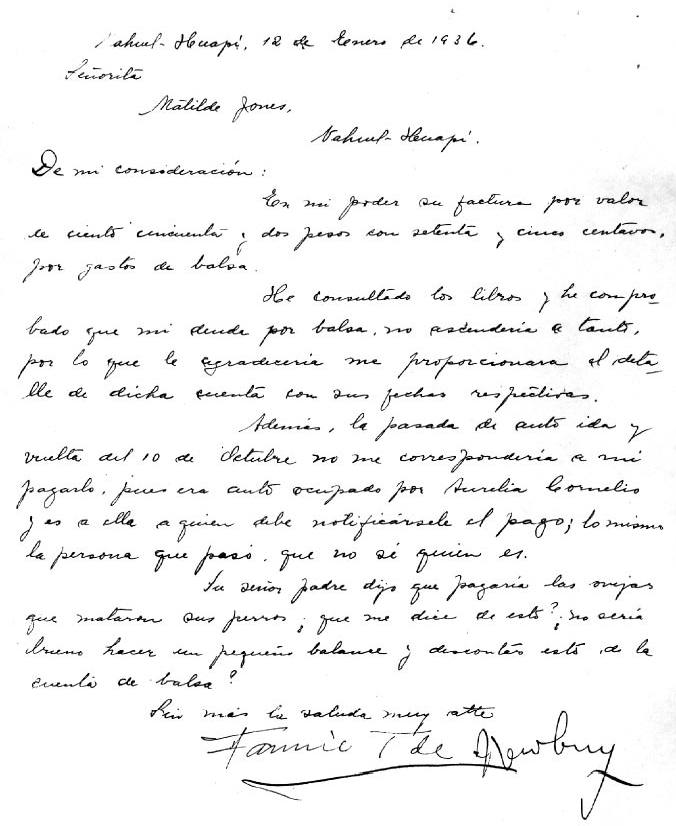 Nahuel-Huapí, 12 de Enero de 1936.
Señorita
Matilde Jones,
Nahuel-Huapí.
De mi consideración:
En mi poder su factura por valor
de ciento cincuenta y dos pesos con setenta y cinco centavos,
por gastos de balsa.
He consultado los libros y he compro-
bado que mi deuda por balsa, no ascendería a tanto,
por lo que le agradecería me proporcionara el deta-
lle de dicha cuenta con sus fechas respectivas.
Además, la pasada de auto ida y
vuelta del 10 de Octubre no me correspondería a mi
pagarlo, pues era auto ocupado por Aurelia Cornelio
y es a ella a quien debe notificársele el pago; lo mismo
la persona que pasó, que no sé quien es.
Su señor padre dijo que pagaría las ovejas
que mataron sus perros, que me dice de esto?; no sería
bueno hacer un pequeño balance y descontar esto de la
cuenta de balsa?
Sin más la saluda muy atte
Fannie T de Newbery